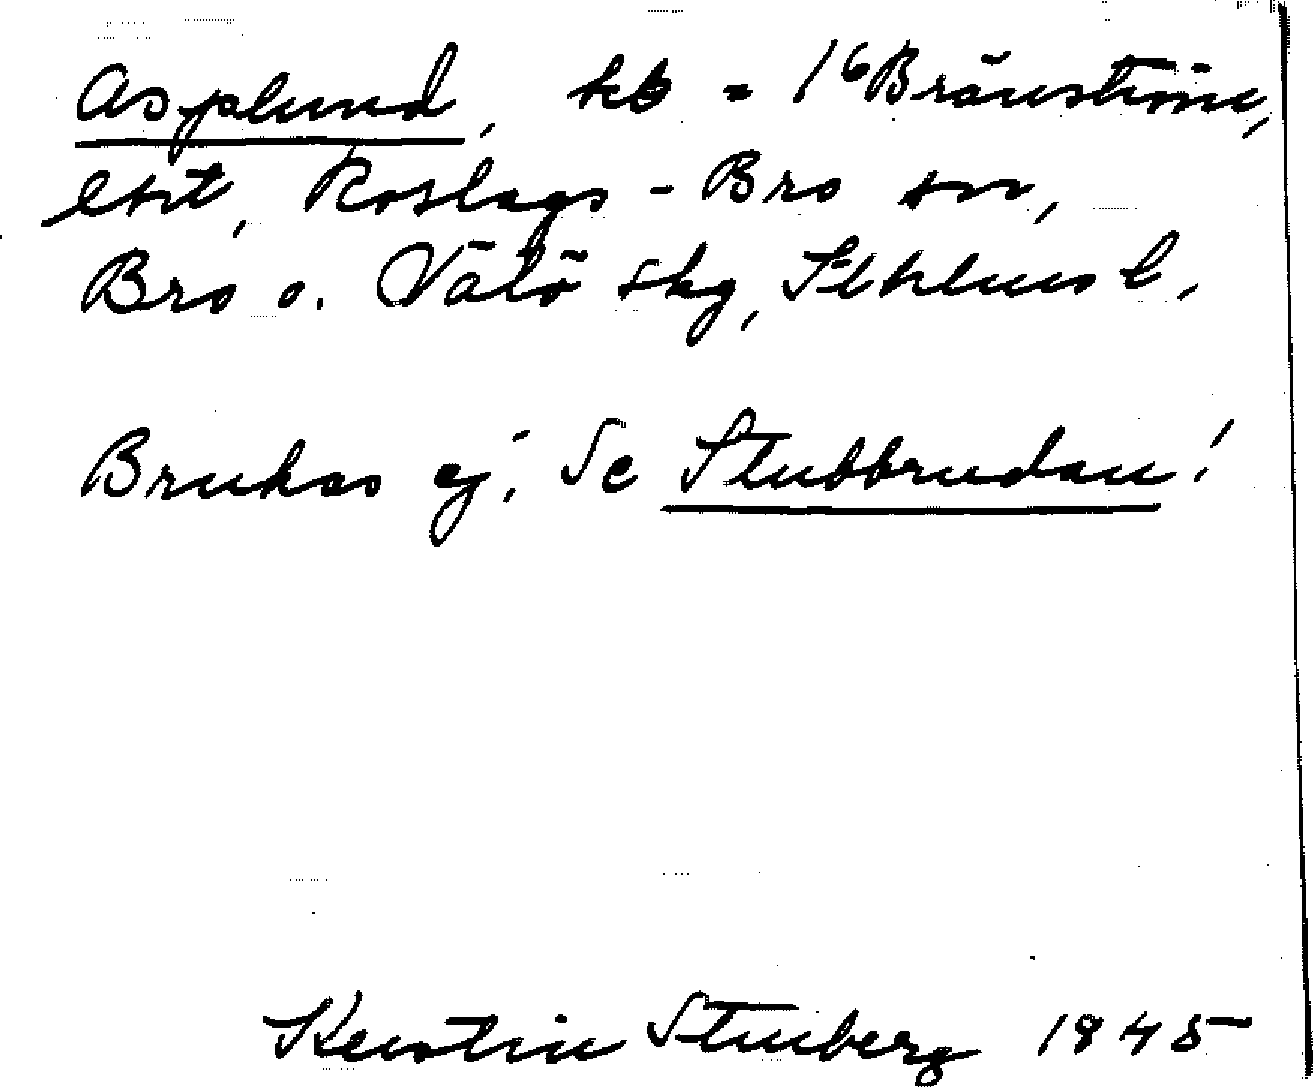 Asplund, hb = 1⁶ Bränströms,
Roslags-Bro sn,
Bro o. Vätö skg, Sthlms l.
Brukas ej. Se Stubbrudan!
Kerstin Stenberg 1945